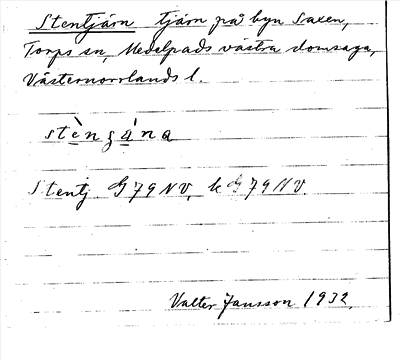 Stentjärn tjärn på byn Saxen,
Torps sn, Medelpads västra domsaga,
Västernorrlands l.
Stentj. G79NV, k G79NV.
Valter Jansson 1932.